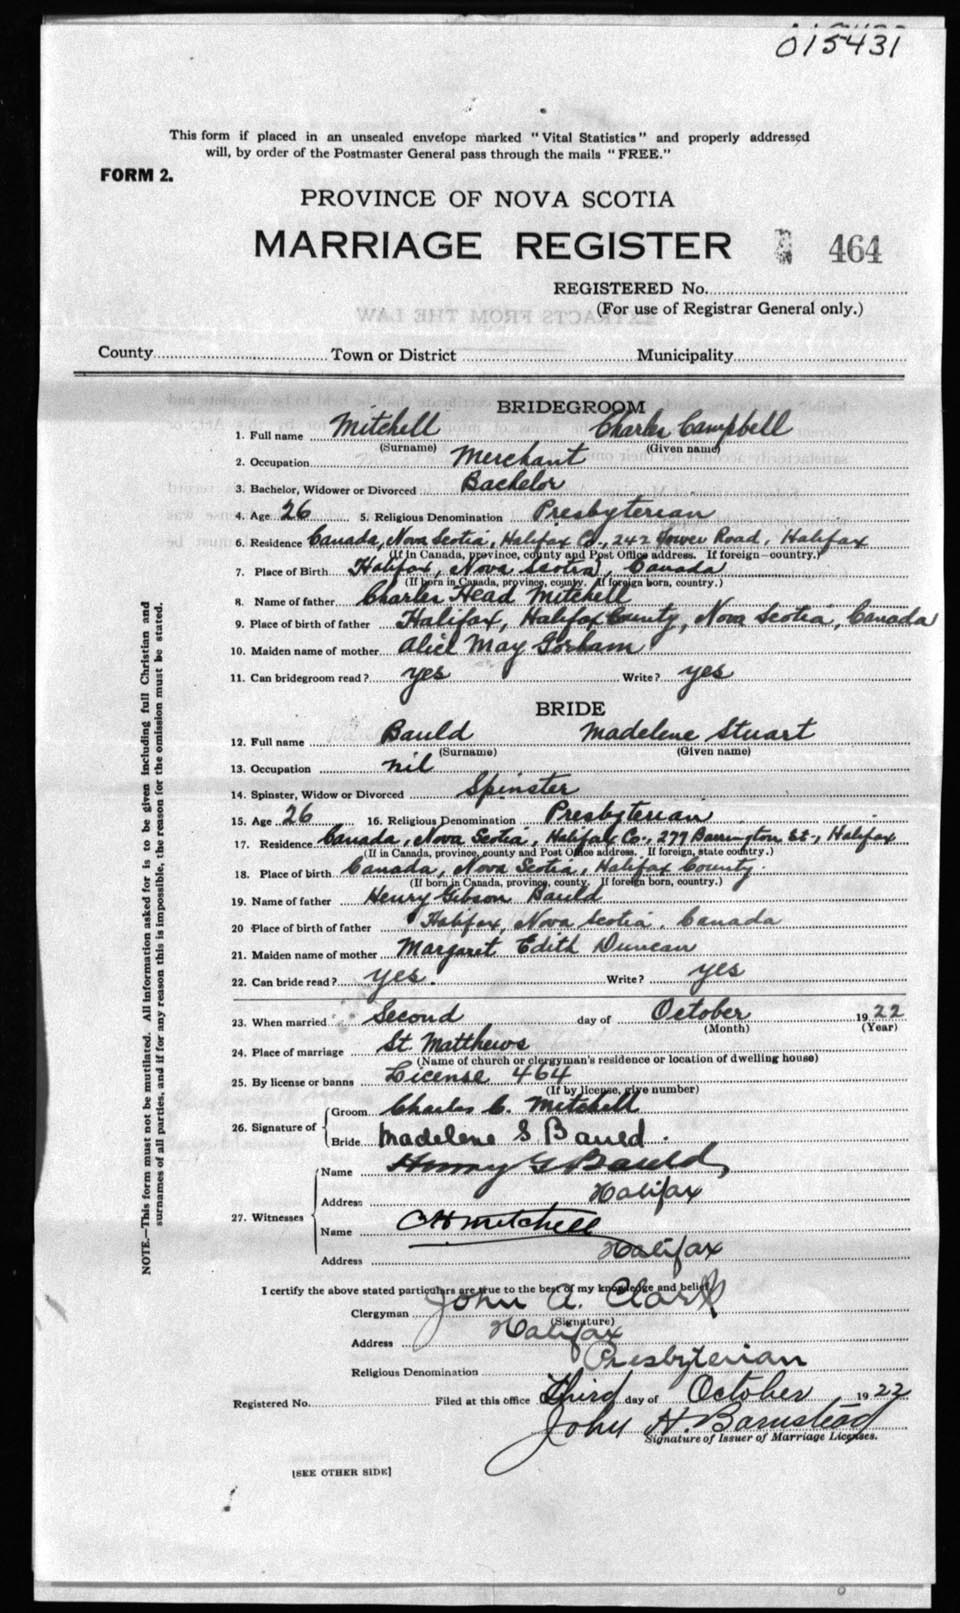 015431
This form if placed in an unsealed envelope marked "Vital Statistics" and properly addressed
will, by order of the Postmaster General pass through the mails "FREE."
FORM 2.
PROVINCE OF NOVA SCOTIA
MARRIAGE REGISTER 464
REGISTERED No.
(For use of Registrar General only.)
County Town or District Municipality
BRIDEGROOM
1. Full name Mitchell Charles Campbell
(Surname) (Given name)
2. Occupation Merchant
3. Bachelor, Widower or Divorced Bachelor
4. Age 26 5. Religious Denomination Presbyterian
6. Residence Canada, Nova Scotia, Halifax Co., 242 Tower Road, Halifax
(If in Canada, province, county and Post Office address. If foreign—country.)
7. Place of Birth Halifax, Nova Scotia, Canada
(If born in Canada, province, county. If foreign born, country.)
8. Name of father Charles Head Mitchell
9. Place of birth of father Halifax, Halifax County, Nova Scotia, Canada
10. Maiden name of mother Alice May Gorham
11. Can bridegroom read? yes Write? yes
BRIDE
12. Full name Bauld Madelene Stuart
(Surname) (Given name)
13. Occupation nil
14. Spinster, Widow or Divorced Spinster
15. Age 26 16. Religious Denomination Presbyterian
17. Residence Canada, Nova Scotia, Halifax Co., 277 Barrington St., Halifax
(If in Canada, province, county and Post Office address. If foreign, state country.)
18. Place of birth Canada, Nova Scotia, Halifax County.
(If born in Canada, province, county. If foreign born, country.)
19. Name of father Henry Gibson Bauld
20 Place of birth of father Halifax, Nova Scotia, Canada
21. Maiden name of mother Margaret Edith Duncan
22. Can bride read? yes. Write? yes
23. When married Second day of October 1922
(Month) (Year)
24. Place of marriage St. Matthews
(Name of church or clergyman's residence or location of dwelling house)
25. By license or banns License 464
(If by license, give number)
26. Signature of Groom Charles C. Mitchell
Bride Madelene S Bauld.
27. Witnesses Name Henry G Bauld
Address Halifax
Name C H Mitchell
Address Halifax
I certify the above stated particulars are true to the best of my knowledge and belief,
Clergyman John A. Clark
(Signature)
Address Halifax
Religious Denomination Presbyterian
Registered No. Filed at this office Third day of October 1922
John H. Barnstead
Signature of Issuer of Marriage Licenses.
[SEE OTHER SIDE]
NOTE.—This form must not be mutilated. All information asked for is to be given including full Christian and
surnames of all parties, and if for any reason this is impossible, the reason for the omission must be stated.